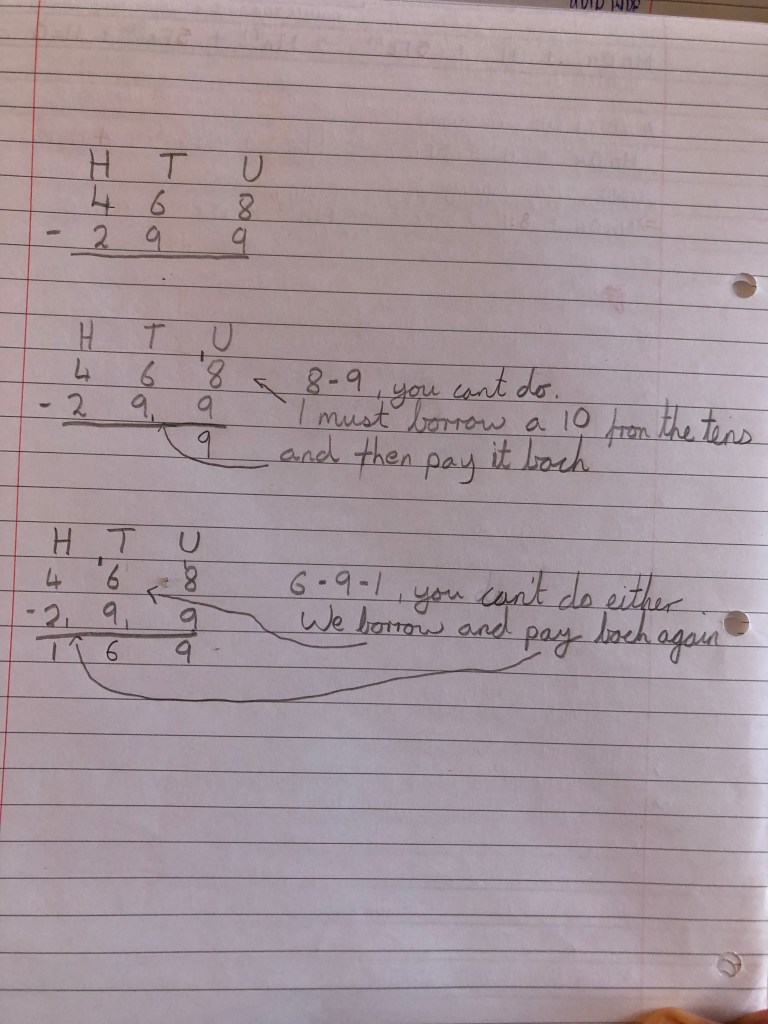 H T U
4 6 8
- 2 9 9
H T U
4 6 18 8-9, you cant do.
- 2 9, 9 I must borrow a 10 from the tens
9 and then pay it back
H T U
4 16 18 6-9-1, you can't do either
- 2, 9, 9 We borrow and pay back again
1 6 9